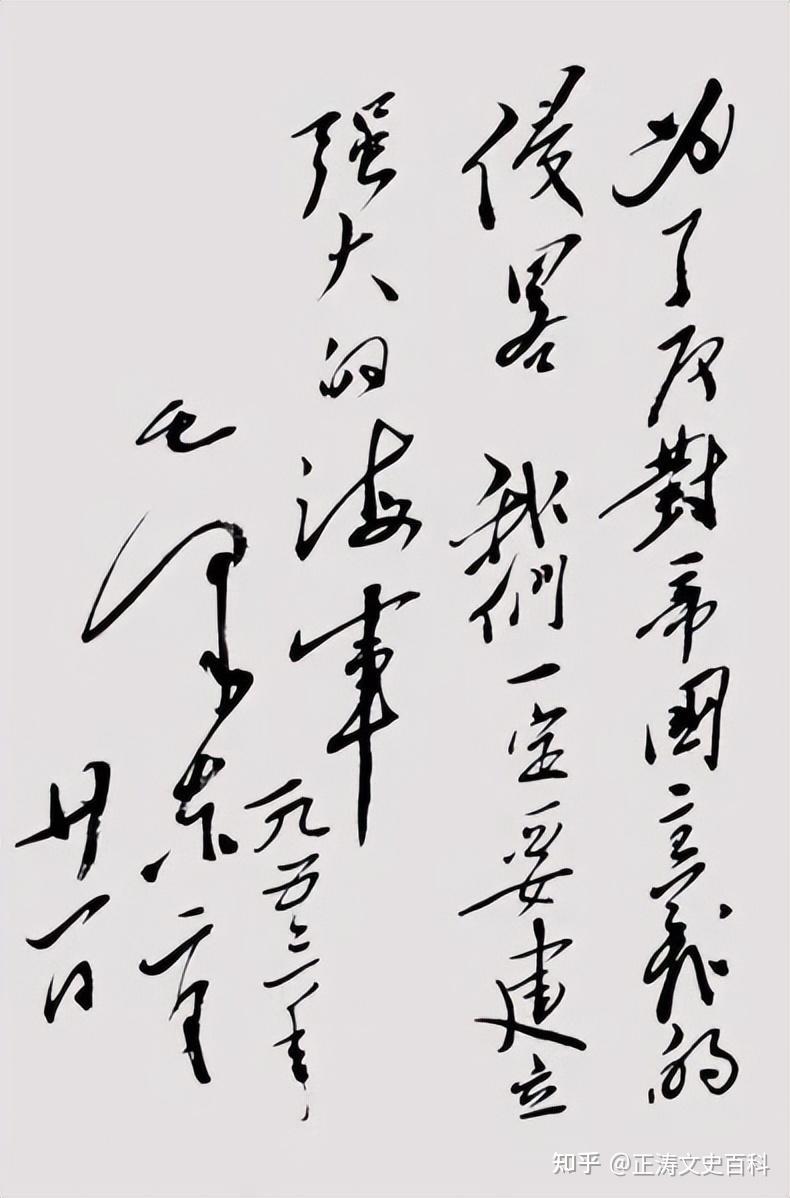 为了反對帝國主義的
侵畧 我們一定要建立
強大的海軍
毛澤东
一九五三年
二月
廿一日
知乎 @正涛文史百科